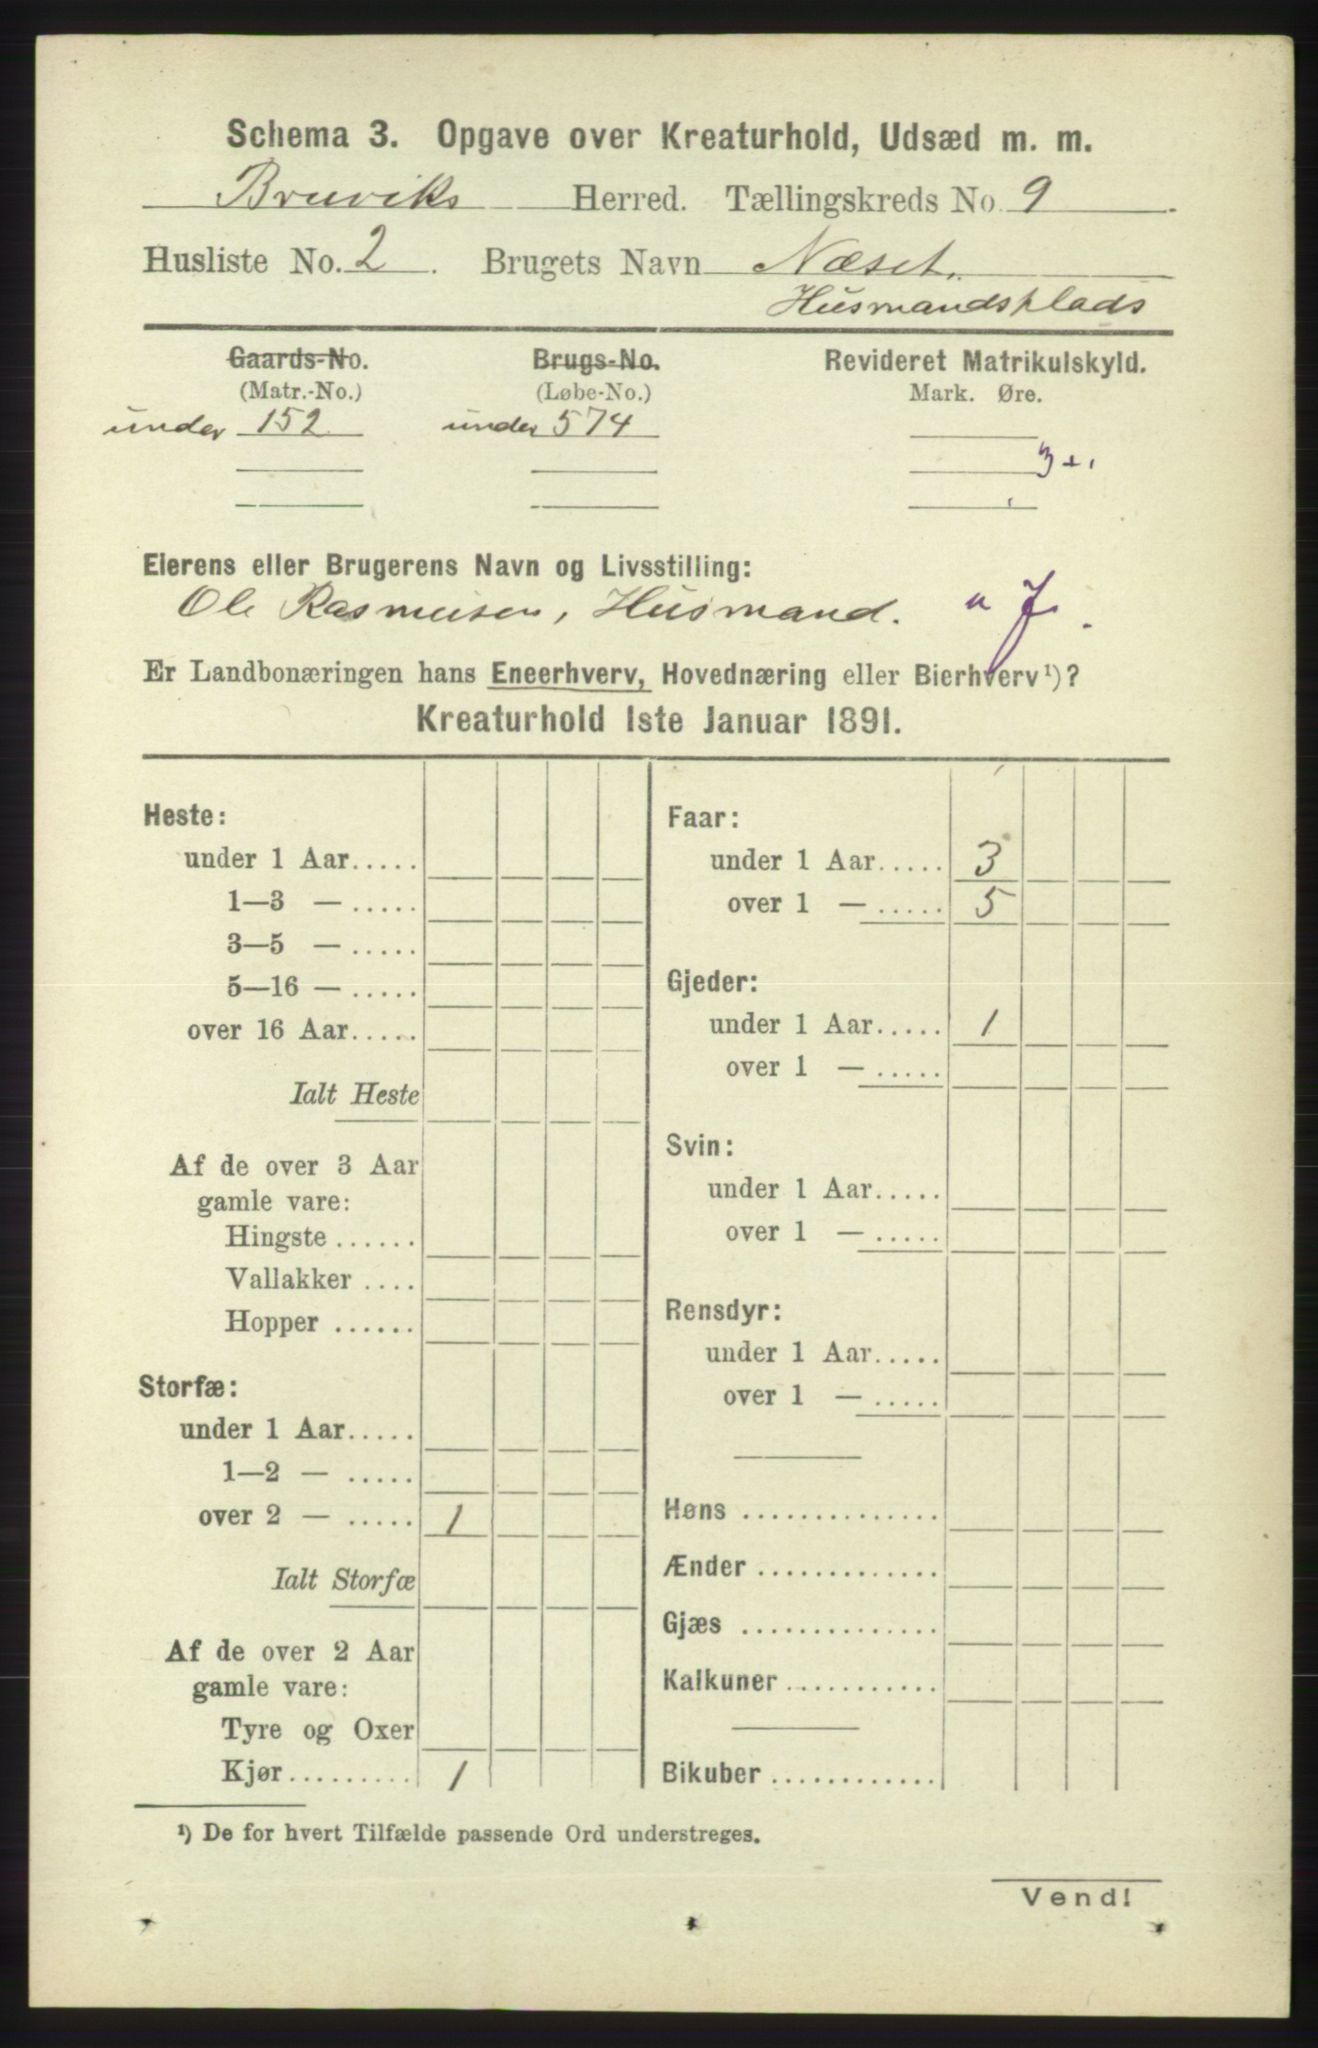 Schema 3. Opgave over Kreaturhold, Udsæd m. m.
Bruviks Herred. Tællingskreds No. 9.
Husliste No. 2. Brugets Navn Næset.
Husmandsplads
Gaards-No. Brugs-No. Revideret Matrikulskyld.
(Matr.-No.) (Løbe-No.) Mark. Øre.
under 152 under 574
3+
Eierens eller Brugerens Navn og Livsstilling:
Ole Rasmusen, Husmand.
Er Landbonæringen hans Eneerhverv, Hovednæring eller Bierhverv¹)?
Kreaturhold 1ste Januar 1891.
Heste:
under 1 Aar.....
1—3 — .....
3—5 — .....
5—16 — .....
over 16 Aar.....
Ialt Heste
Af de over 3 Aar
gamle vare:
Hingste ......
Vallakker ....
Hopper ......
Storfæ:
under 1 Aar.....
1—2 — .....
over 2 — ..... 1
Ialt Storfæ
Af de over 2 Aar
gamle vare:
Tyre og Oxer
Kjør.......... 1
Faar:
under 1 Aar..... 3
over 1 — ..... 5
Gjeder:
under 1 Aar..... 1
over 1 — .....
Svin:
under 1 Aar.....
over 1 — .....
Rensdyr:
under 1 Aar.....
over 1 — .....
Høns ..............
Ænder .............
Gjæs ..............
Kalkuner ...........
Bikuber ............
¹) De for hvert Tilfælde passende Ord understreges.
Vend!